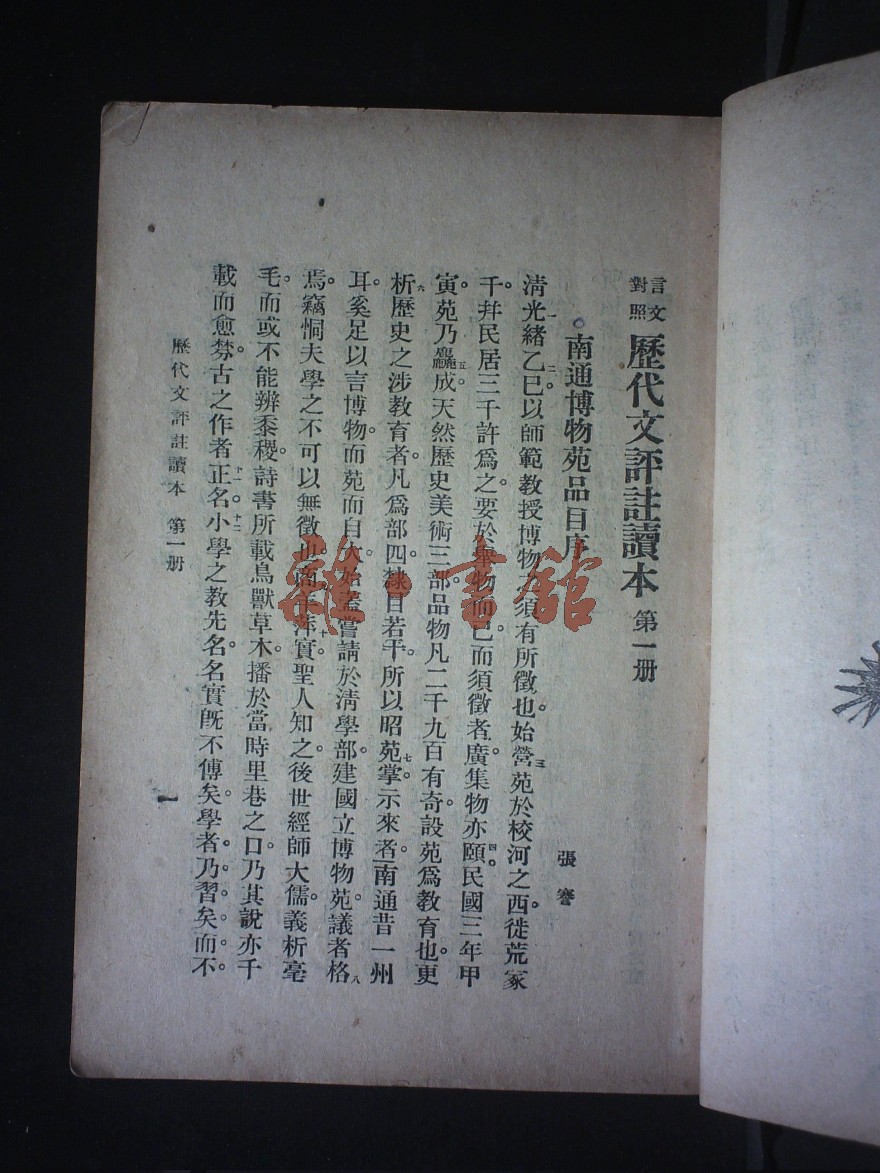 言文對照 歷代文評註讀本 第一册
南通博物苑品目序
張謇
清光緒一乙巳二。以師範教授博物。須有所徵也。始營三苑於校河之西。徙荒冢
千。幷民居三千許爲之。要於舉物而已。而須徵者廣。集物亦頤四。民國三年甲
寅。苑乃麤五成。天然歷史美術三部。品物凡二千九百有奇。設苑爲教育也。更
析六歷史之涉教育者。凡爲部四。隸目若干。所以昭苑七掌示來者。南通昔一州
耳。奚足以言博物。而苑而自大。始蓋嘗請於清學部建國立博物苑。議者格八
焉。竊恫夫學之不可以無徵也。商羊萍十實。聖人知之。後世經師大儒。義析毫
毛。而或不能辨黍稷。詩書所載鳥獸草木。播於當時里巷之口。乃其說亦千
載而愈棼。古之作者正十一名。小十二學之教先名。名實旣不傅矣。學者乃習矣而不
歷代文評註讀本 第一册
一
雜·書館